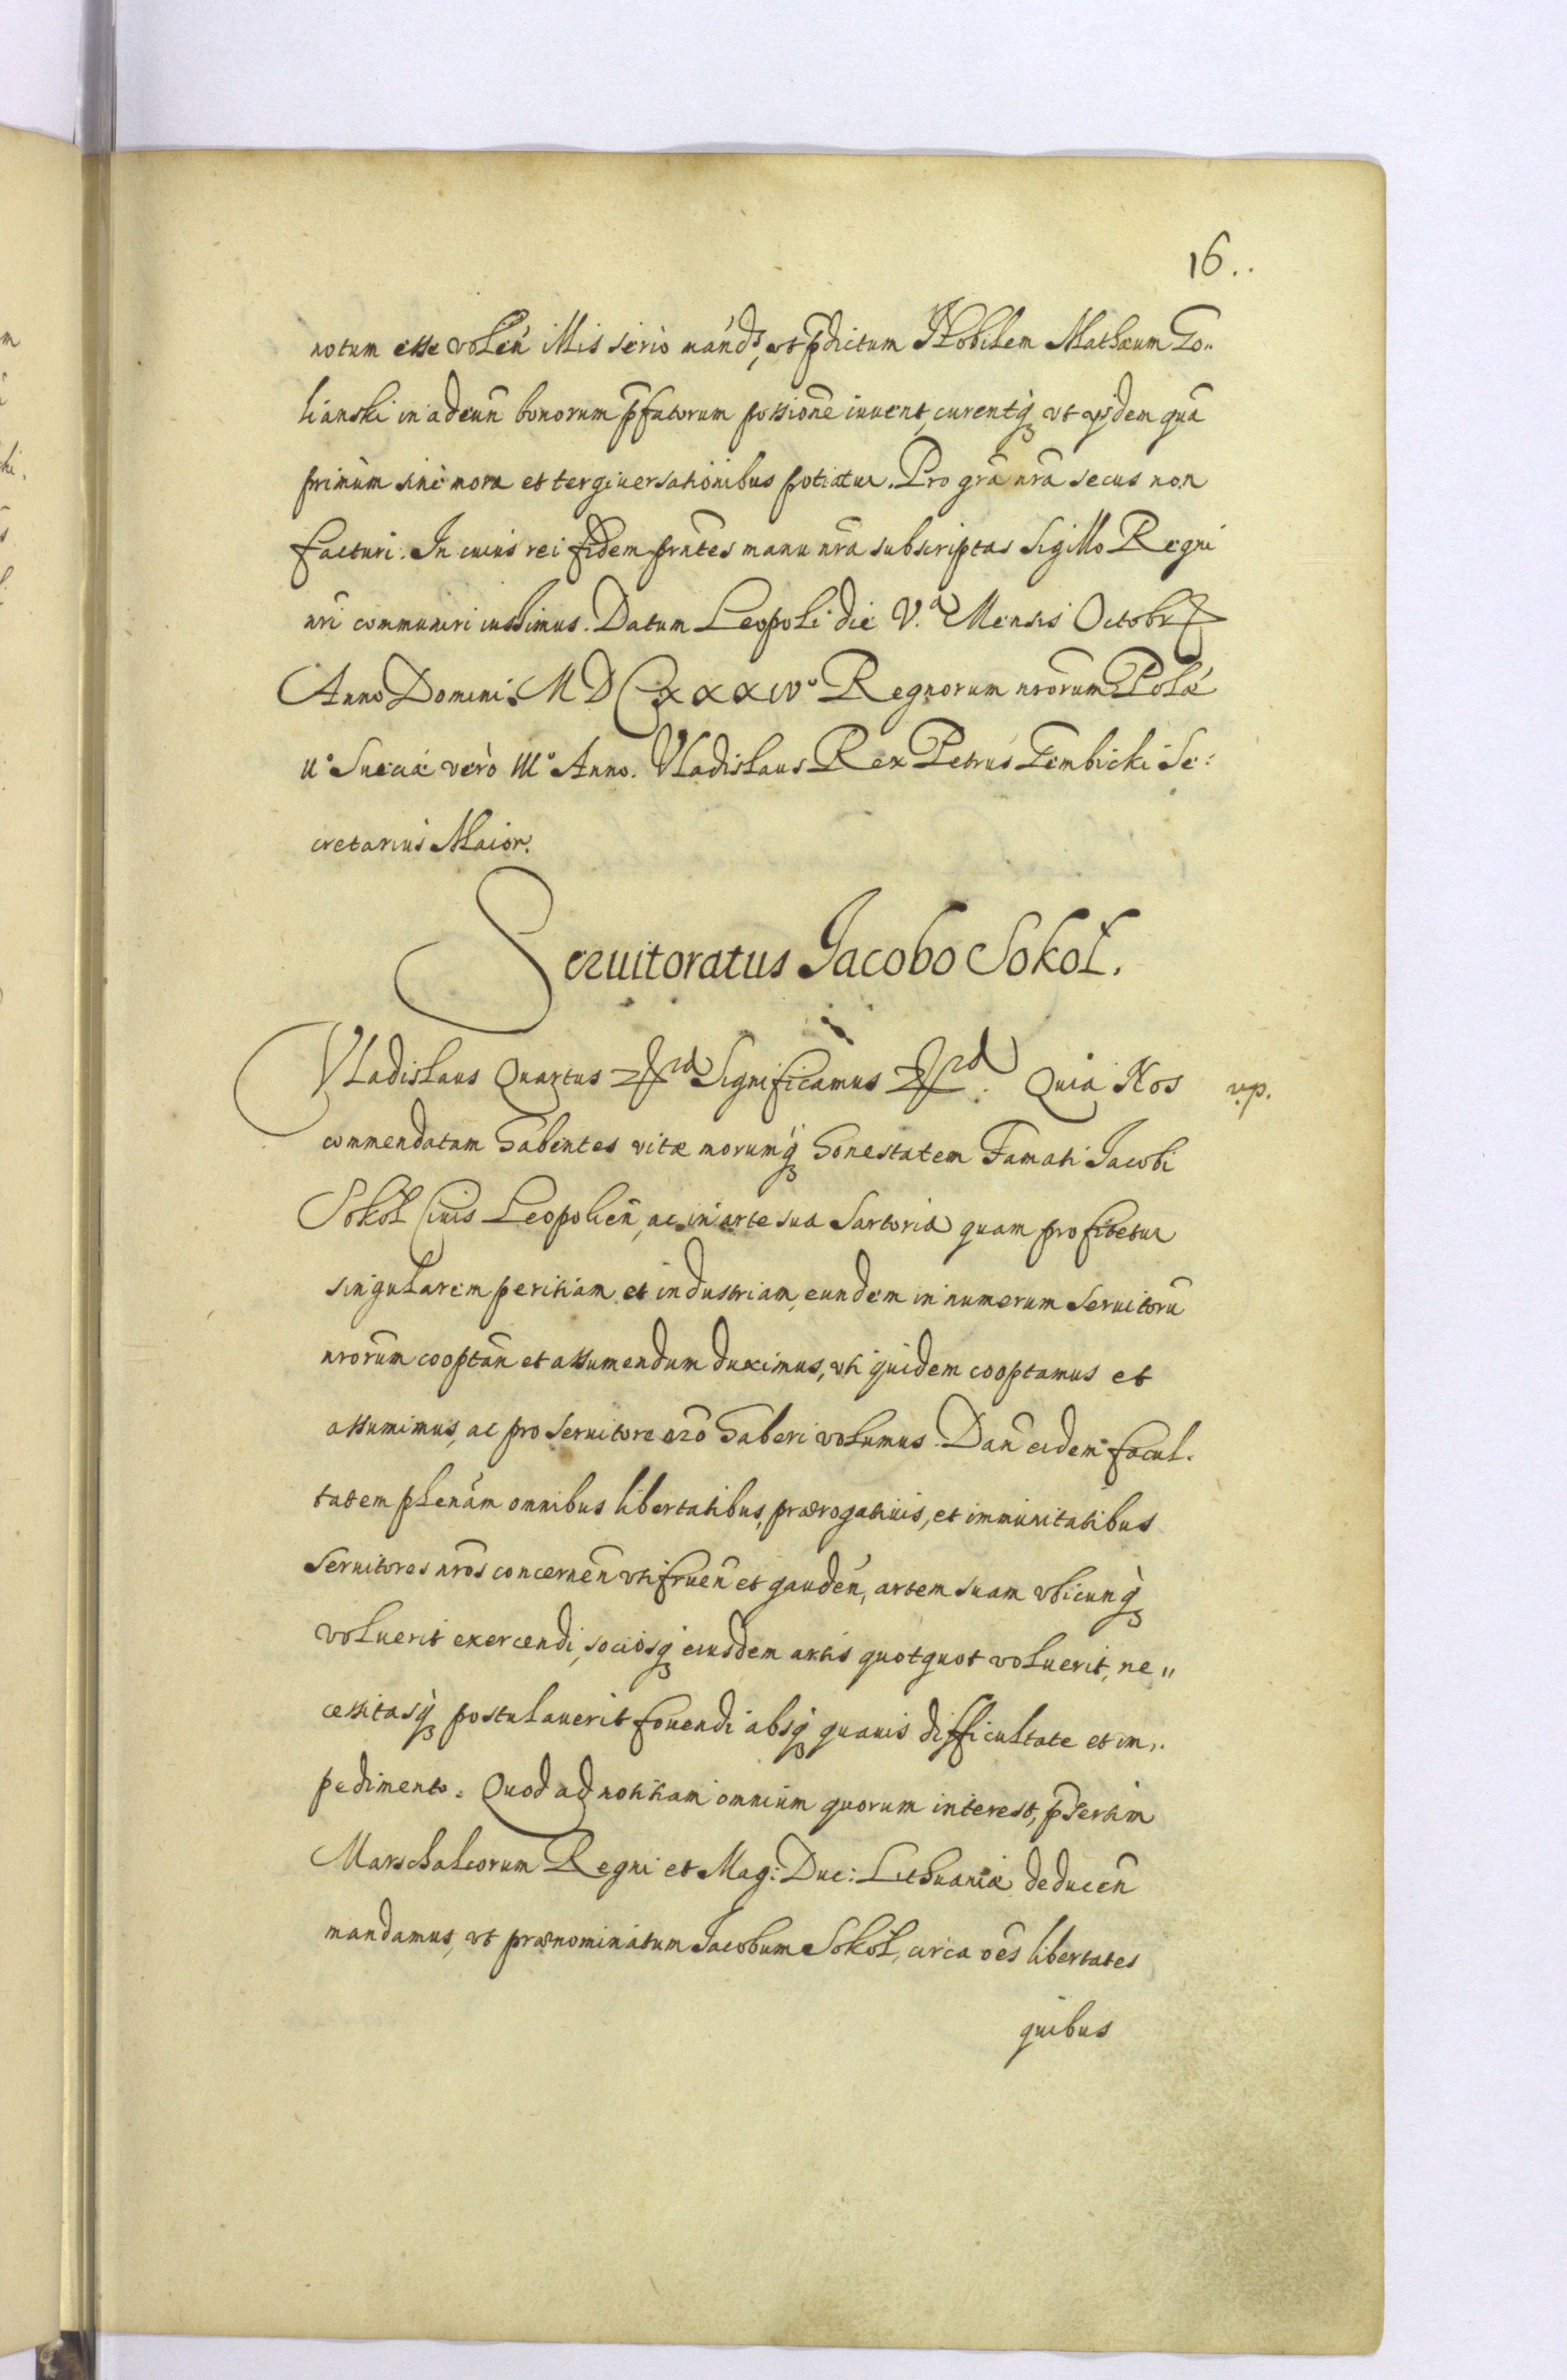 16..
notum esse volen̄ illis serio man̄ds, ut p̄dictum Nobilem Mathæum Go..
lianski in adeun̄ bonorum p̄fatorum possionē iuuent, curentq́ʒ ut ijsdem quā
primùm sine mora et tergiuersationibus potiatur. Pro grā nrā secus non
facturi. In cuius rei fidem prn̄tes manu nrā subscriptas Sigillo Regni
nrī communiri iussimus. Datum Leopoli die V.ª Mensis Octobr
Anno Domini MDCXXXIV° Regnorum nrōrum Polæ
II° Sueciæ verò III° Anno. Vladislaus Rex Petrus Gembicki Se:
cretarius Maior.
Seruitoratus Jacobo Sokoł.
Vladislaus Quartus Significamus Quia Nos v.p.
commendatam habentes vitæ morumq́ʒ honestatem Famati Jacobi
Sokoł Ciuis Leopolien̄, ac in arte sua Sartoria quam profitetur
singularem peritiam et industriam, eundem in numerum Seruitorū
nrōrum cooptan̄ et assumendum duximus, uti quidem cooptamus et
assumimus, ac pro Seruitore nrō haberi volumus. Dan̄ eidem facul.
tatem plenam omnibus libertatibus, prærogatiuis, et immunitatibus
Seruitores nrōs concernen̄ uti fruen̄ et gauden̄, artem suam ubicunq́ʒ
voluerit exercendi, sociosq́ʒ eiusdem artis quotquot voluerit, ne„
cessitasq́ʒ postulauerit fouendi absq́ʒ quauis difficultate et im„
pedimento. Quod ad notitiam omnium quorum interest, p̄sertim
Marschalcorum Regni et Mag: Duc: Lithuaniæ deducen̄
mandamus, ut prænominatum Jacobum Sokoł, circa oēs libertates
quibus